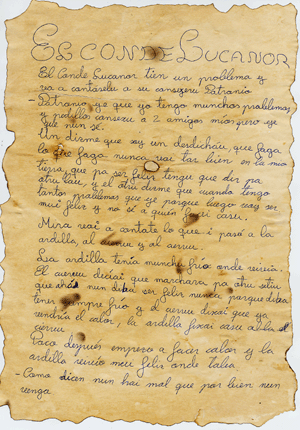 EL CONDE LUCANOR
El Conde Lucanor tien un problema y
va a contaselu a su conseyeru Patronio
- Patronio ye que yo tengo munchos problemas
y pedílos conseyu a 2 amigos míos pero ye
que nun sé.
Un dirme que soy un desdicháu, que faga
lo que faga nunca voi tar bien en la mio
tierra, que pa ser feliz tengu que dir pa
otru llau, y el otru dirme que cuando tengo
tantos problemas que ye porque luego voy ser
mui feliz y no sé a quién faer casu.
Mira voi a contate lo que i pasó a la
ardilla, al cuervu y al
Esa ardilla tenía muncho fríu onde vivía.
El cuervu decíai que marchara pa otru sitiu
que ehí nun diba ser feliz nunca porque diba
tener siempre fríu y el dixoi que ya
vendría el calor, la ardilla fixoi casu al
cuervu
Poco después empezó a facer calor y la
ardilla vivió mui feliz onde taba
- Como dicen nun hai mal que por bien nun
venga